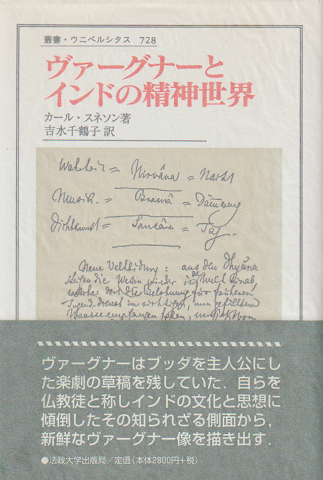 叢書・ウニベルシタス 728
ヴァーグナーと
インドの精神世界
カール・スネソン著
吉水千鶴子 訳
Wahrheit = Nirvâna = Nacht
Musik = Bramâ = Dämmerung
Dichtkunst = Sansâra = Tag.
ヴァーグナーはブッダを主人公にし
た楽劇の草稿を残していた．自らを
仏教徒と称しインドの文化と思想に
傾倒したその知られざる側面から，
新鮮なヴァーグナー像を描き出す．
●法政大学出版局／定価（本体2800円＋税）